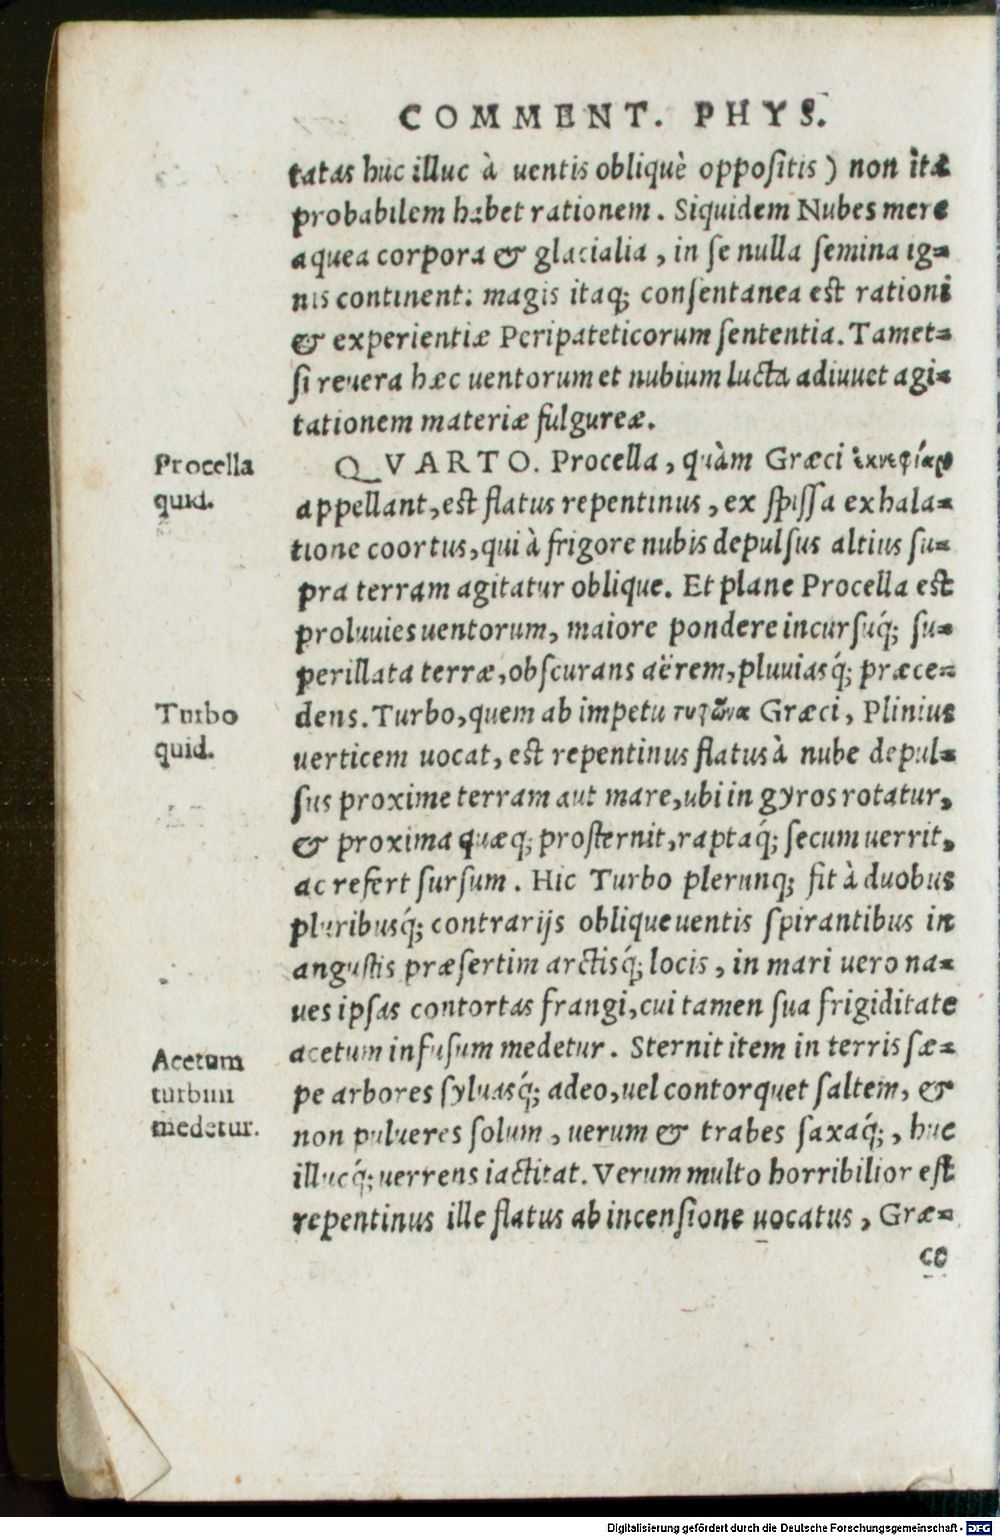 COMMENT. PHYS.
tatas huc illuc à uentis obliquè oppositis) non ita
probabilem habet rationem. Siquidem Nubes mere
aquea corpora & glacialia, in se nulla semina ig=
nis continent: magis itaq; consentanea est rationi
& experientiæ Peripateticorum sententia. Tamet=
si reuera hæc uentorum et nubium lucta adiuuet agi=
tationem materiæ fulgureæ.
Procella
quid.
QVARTO. Procella, quàm Græci
appellant, est flatus repentinus, ex spissa exhala=
tione coortus, qui à frigore nubis depulsus altius su=
pra terram agitatur oblique. Et plane Procella est
proluuies uentorum, maiore pondere incursuq́; su=
perillata terræ, obscurans aërem, pluuiasq́; præce=
Turbo
quid.
dens. Turbo, quem ab impetu τυφῶνα Græci, Plinius
uerticem uocat, est repentinus flatus à nube depul=
sus proxime terram aut mare, ubi in gyros rotatur,
& proxima quæq; prosternit, raptaq́; secum uerrit,
ac refert sursum. Hic Turbo plerunq; fit à duobus
pluribusq́; contrarijs oblique uentis spirantibus in
angustis præsertim arctisq́; locis, in mari uero na=
ues ipsas contortas frangi, cui tamen sua frigiditate
Acetum
turbini
medetur.
acetum infusum medetur. Sternit item in terris sæ=
pe arbores syluasq́; adeo, uel contorquet saltem, &
non pulueres solum, uerum & trabes saxaq́;, huc
illucq́; uerrens iactitat. Verum multo horribilior est
repentinus ille flatus ab incensione uocatus, Græ=
co
Digitalisierung gefördert durch die Deutsche Forschungsgemeinschaft - DFG